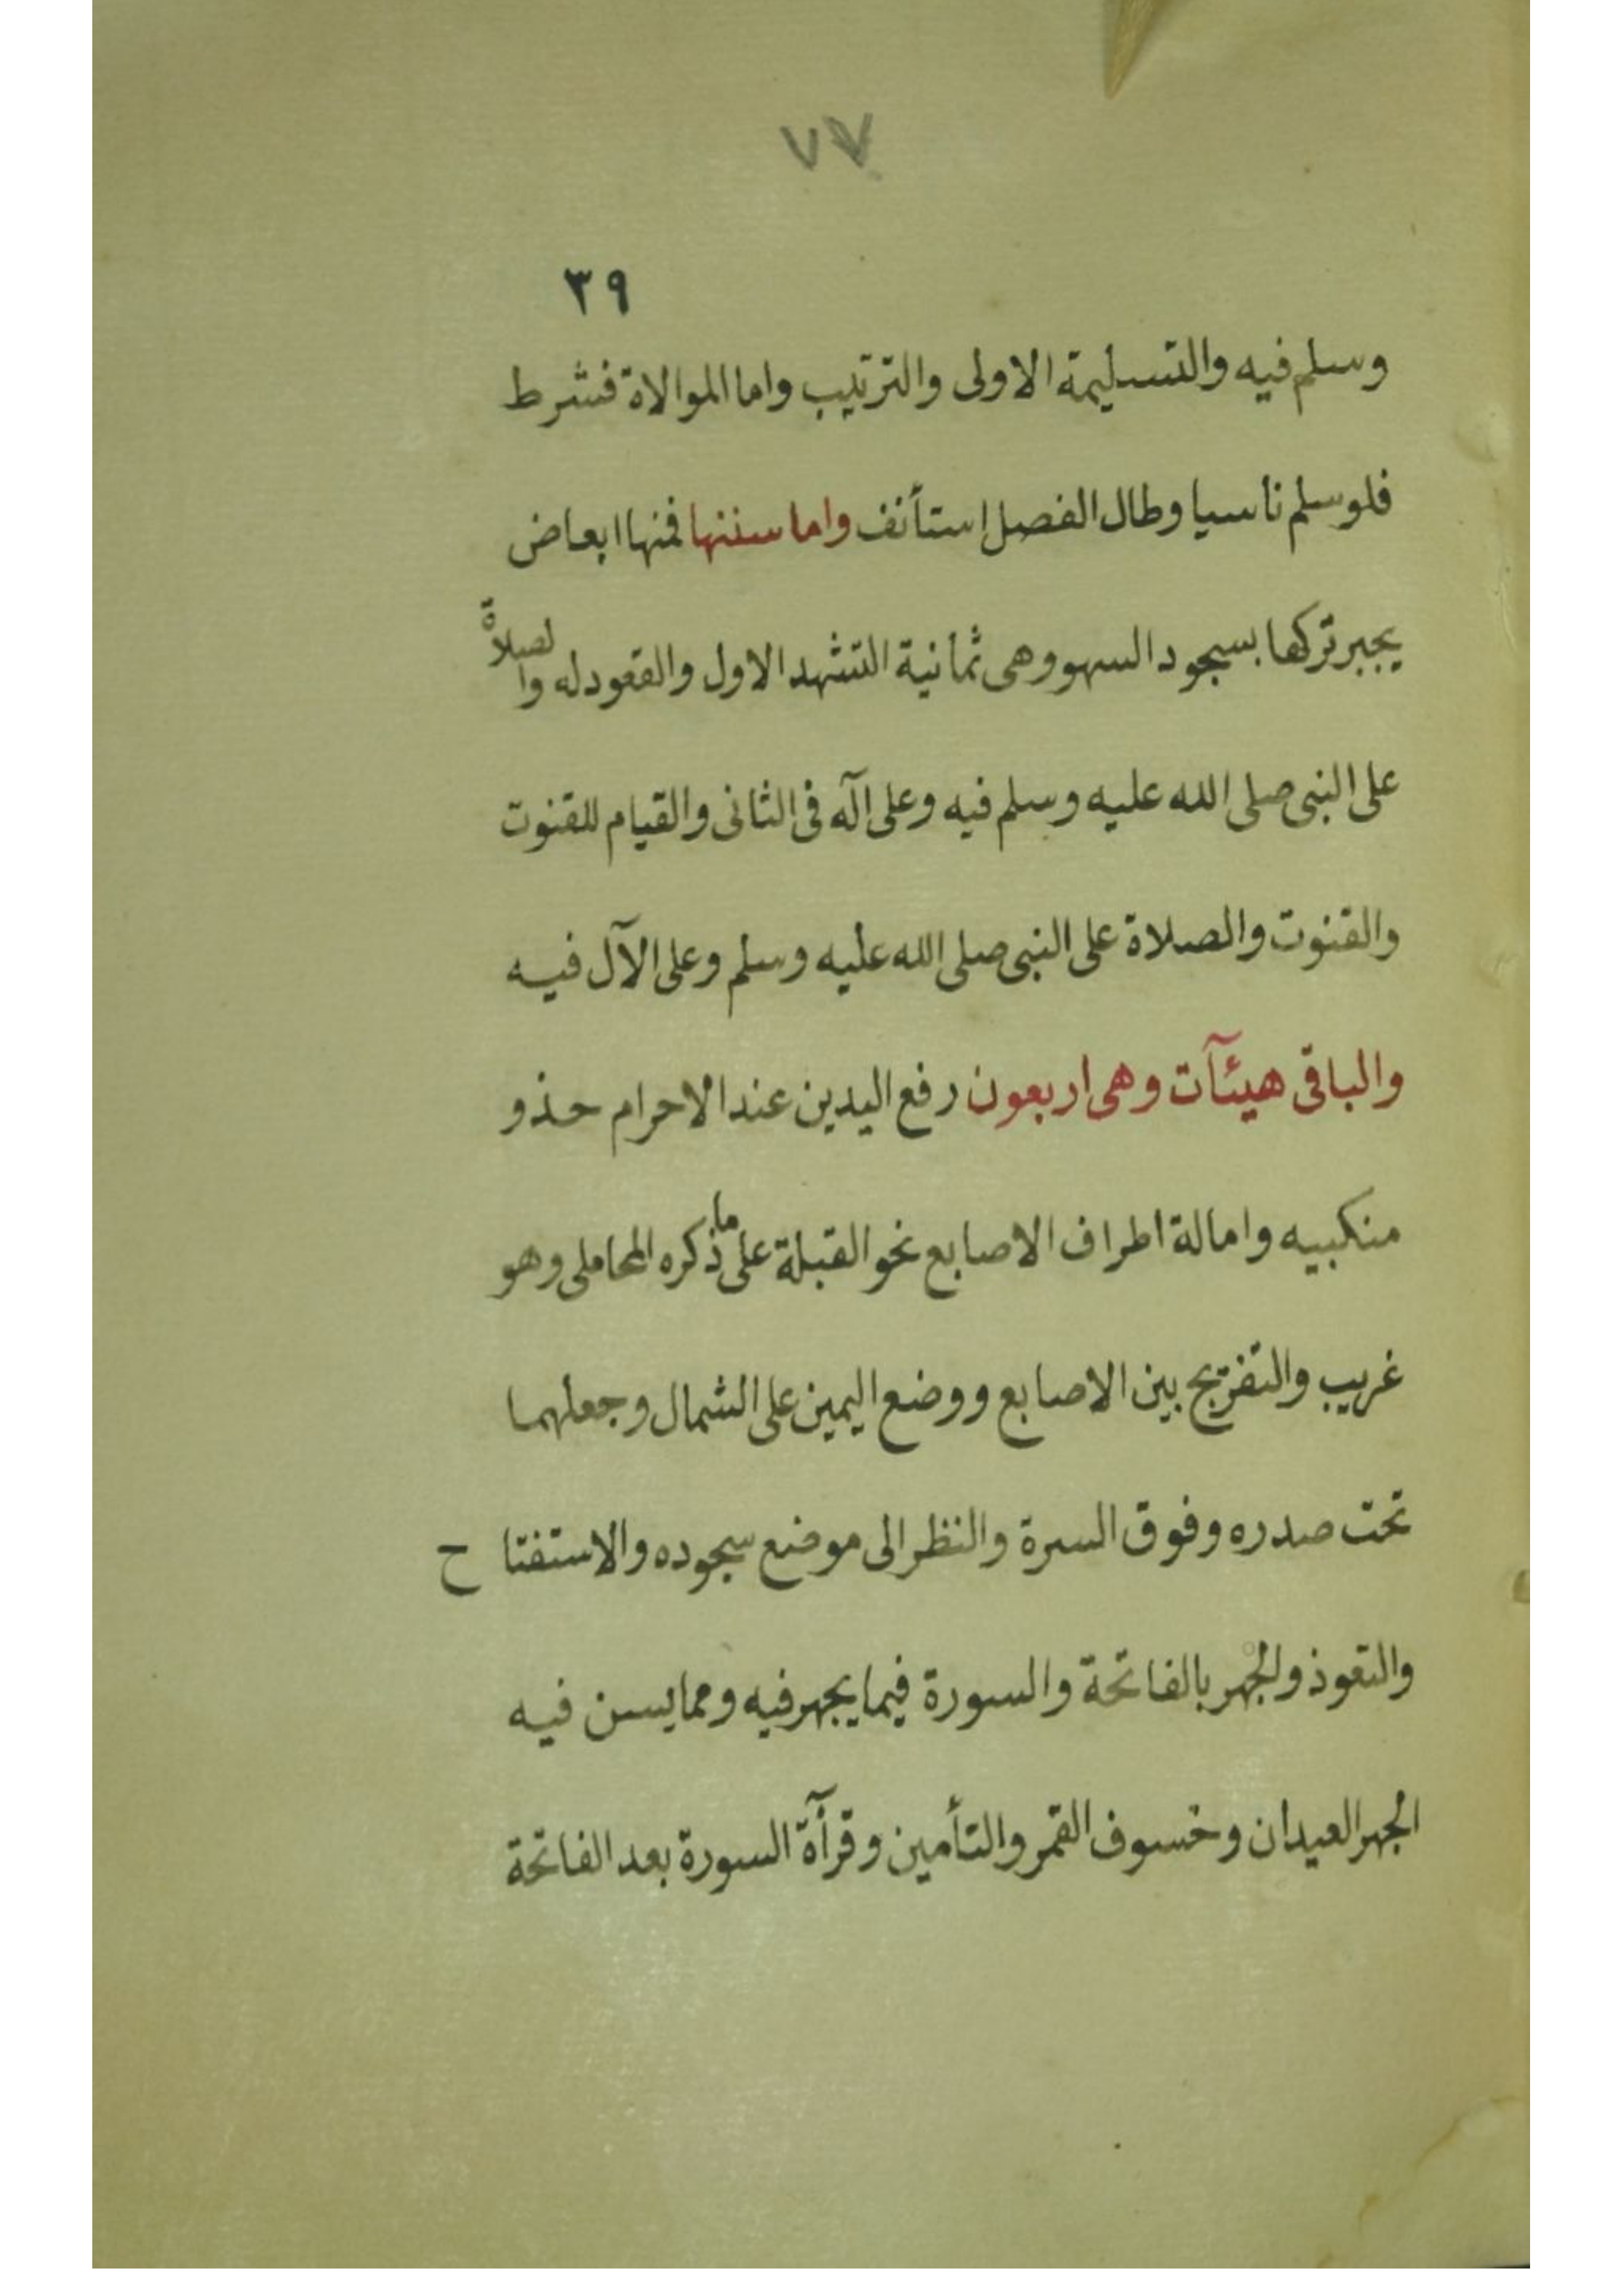 ٧٧
٣٩
وسلم فيه والتسليمة الاولى والترتيب واما الموالاة فشرط
فلو سلم ناسيا وطال الفصل استأنف واما سننها فمنها ابعاض
يجبر تركها بسجود السهو وهى ثمانية التشهد الاول والقعود له والصلاة
على النبى صلى الله عليه وسلم فيه وعلى آله فى الثانى والقيام للقنوت
والقنوت والصلاة على النبى صلى الله عليه وسلم وعلى الآل فيه
والباقى هيئآت وهى اربعون رفع اليدين عند الاحرام حذو
منكبيه وامالة اطراف الاصابع نحو القبلة على ما ذكره المحاملى وهو
غريب والتفريج بين الاصابع ووضع اليمين على الشمال وجعلهما
تحت صدره وفوق السرة والنظر الى موضع سجوده والاستفتاح
والتعوذ والجهر بالفاتحة والسورة فيما يجهر فيه ومما يسن فيه
الجهر العيدان وخسوف القمر والتأمين وقرآة السورة بعد الفاتحة